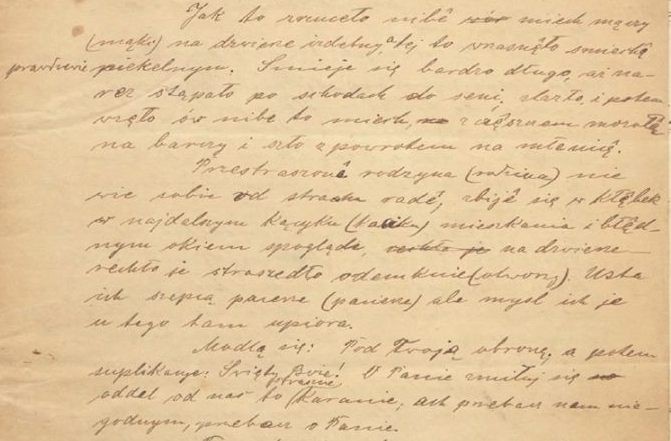 Jak to rzuceło nibé miech mączy
(mąki) na dzwierze izdebny, a tej to wrzasnęło smiechę
prawdziwie piekelnym. Smieje się bardzo długo, aż na-
rez stąpało po schodach do seni, zlazło, i potem
wzęło ów nibe to miech, na
na barczy i szło z powrotem na młenicę.
Przestraszoné rodzyna (rodzina) nie
wie sobie od strachu radé, zbijé się w kłębek
w najdalszym kącyku (kąciku) mieszkania i błęd-
nym okiem spoglądé, rechło je na dzwierze
rechło je straszedło odemknie (otworzy). Usta
ich szepią pacierze (pacierze) ale mysl ich je
u tego tam upiora.
Modlą się: Pod Twoją obronę, a potem
suplikacyje: Święty Boże! O Panie zmiłuj się
oddel od nas to straszné karanie, ach przebacz nam nie-
godnym, przebacz o Panie.